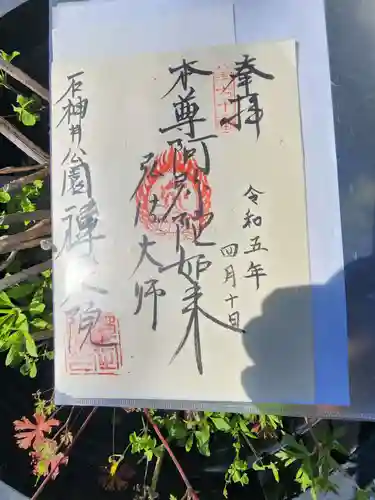 奉拝
令和五年
四月十日
本尊阿弥陀如来
弘法大師
石神井公園禅定院